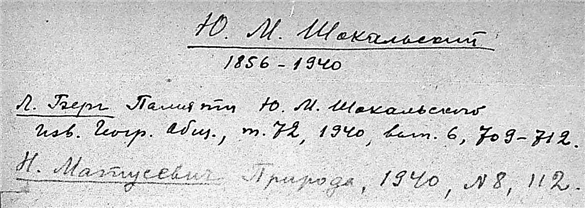 Ю. М. Шокальский
1856-1940
Л. Берг Памяти Ю. М. Шокальского
Изв. Геогр. Общ., т. 72, 1940, вып. 6, 709-712.
Н. Матусевич Природа, 1940, N 8, 112.